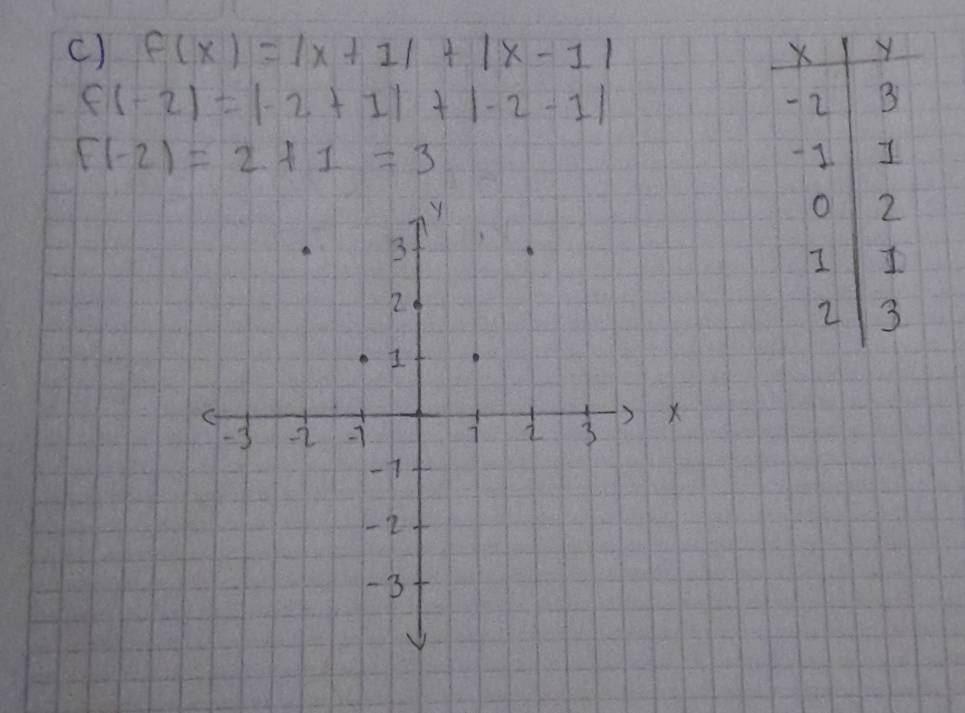 c) f(x) = |x + 1| + |x - 1|
f(-2) = |-2 + 1| + |-2 - 1|
f(-2) = 2 + 1 = 3
x y
-2 3
-1 1
0 2
1 1
2 3
y
3
2
1
-3 -2 -1 1 2 3 x
-1
-2
-3